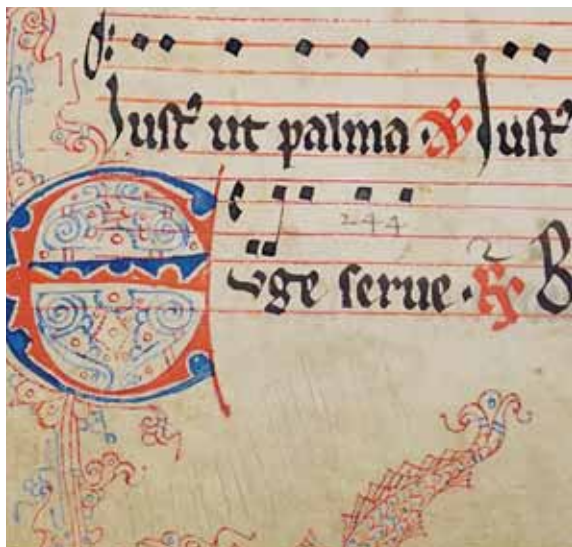 Iust᾽ ut palma · ℟ Iust᾽
244
Euge serue · ℟ B